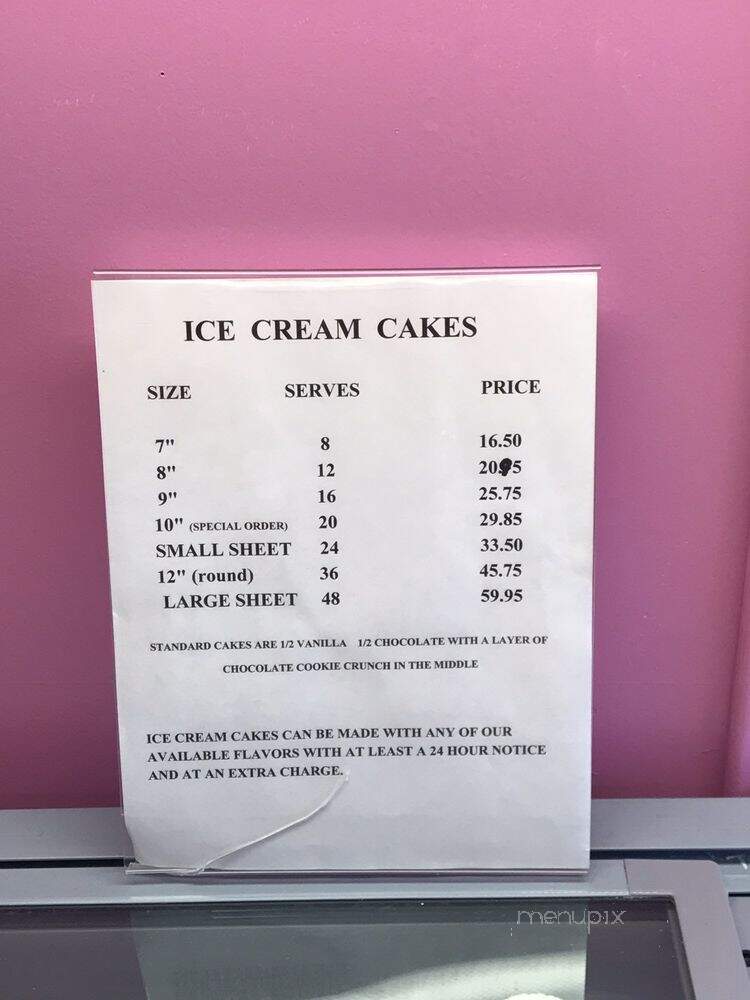 ICE CREAM CAKES
SIZE SERVES PRICE
7" 8 16.50
8" 12 20.95
9" 16 25.75
10" (SPECIAL ORDER) 20 29.85
SMALL SHEET 24 33.50
12" (round) 36 45.75
LARGE SHEET 48 59.95
STANDARD CAKES ARE 1/2 VANILLA 1/2 CHOCOLATE WITH A LAYER OF
CHOCOLATE COOKIE CRUNCH IN THE MIDDLE
ICE CREAM CAKES CAN BE MADE WITH ANY OF OUR
AVAILABLE FLAVORS WITH AT LEAST A 24 HOUR NOTICE
AND AT AN EXTRA CHARGE.
menupix